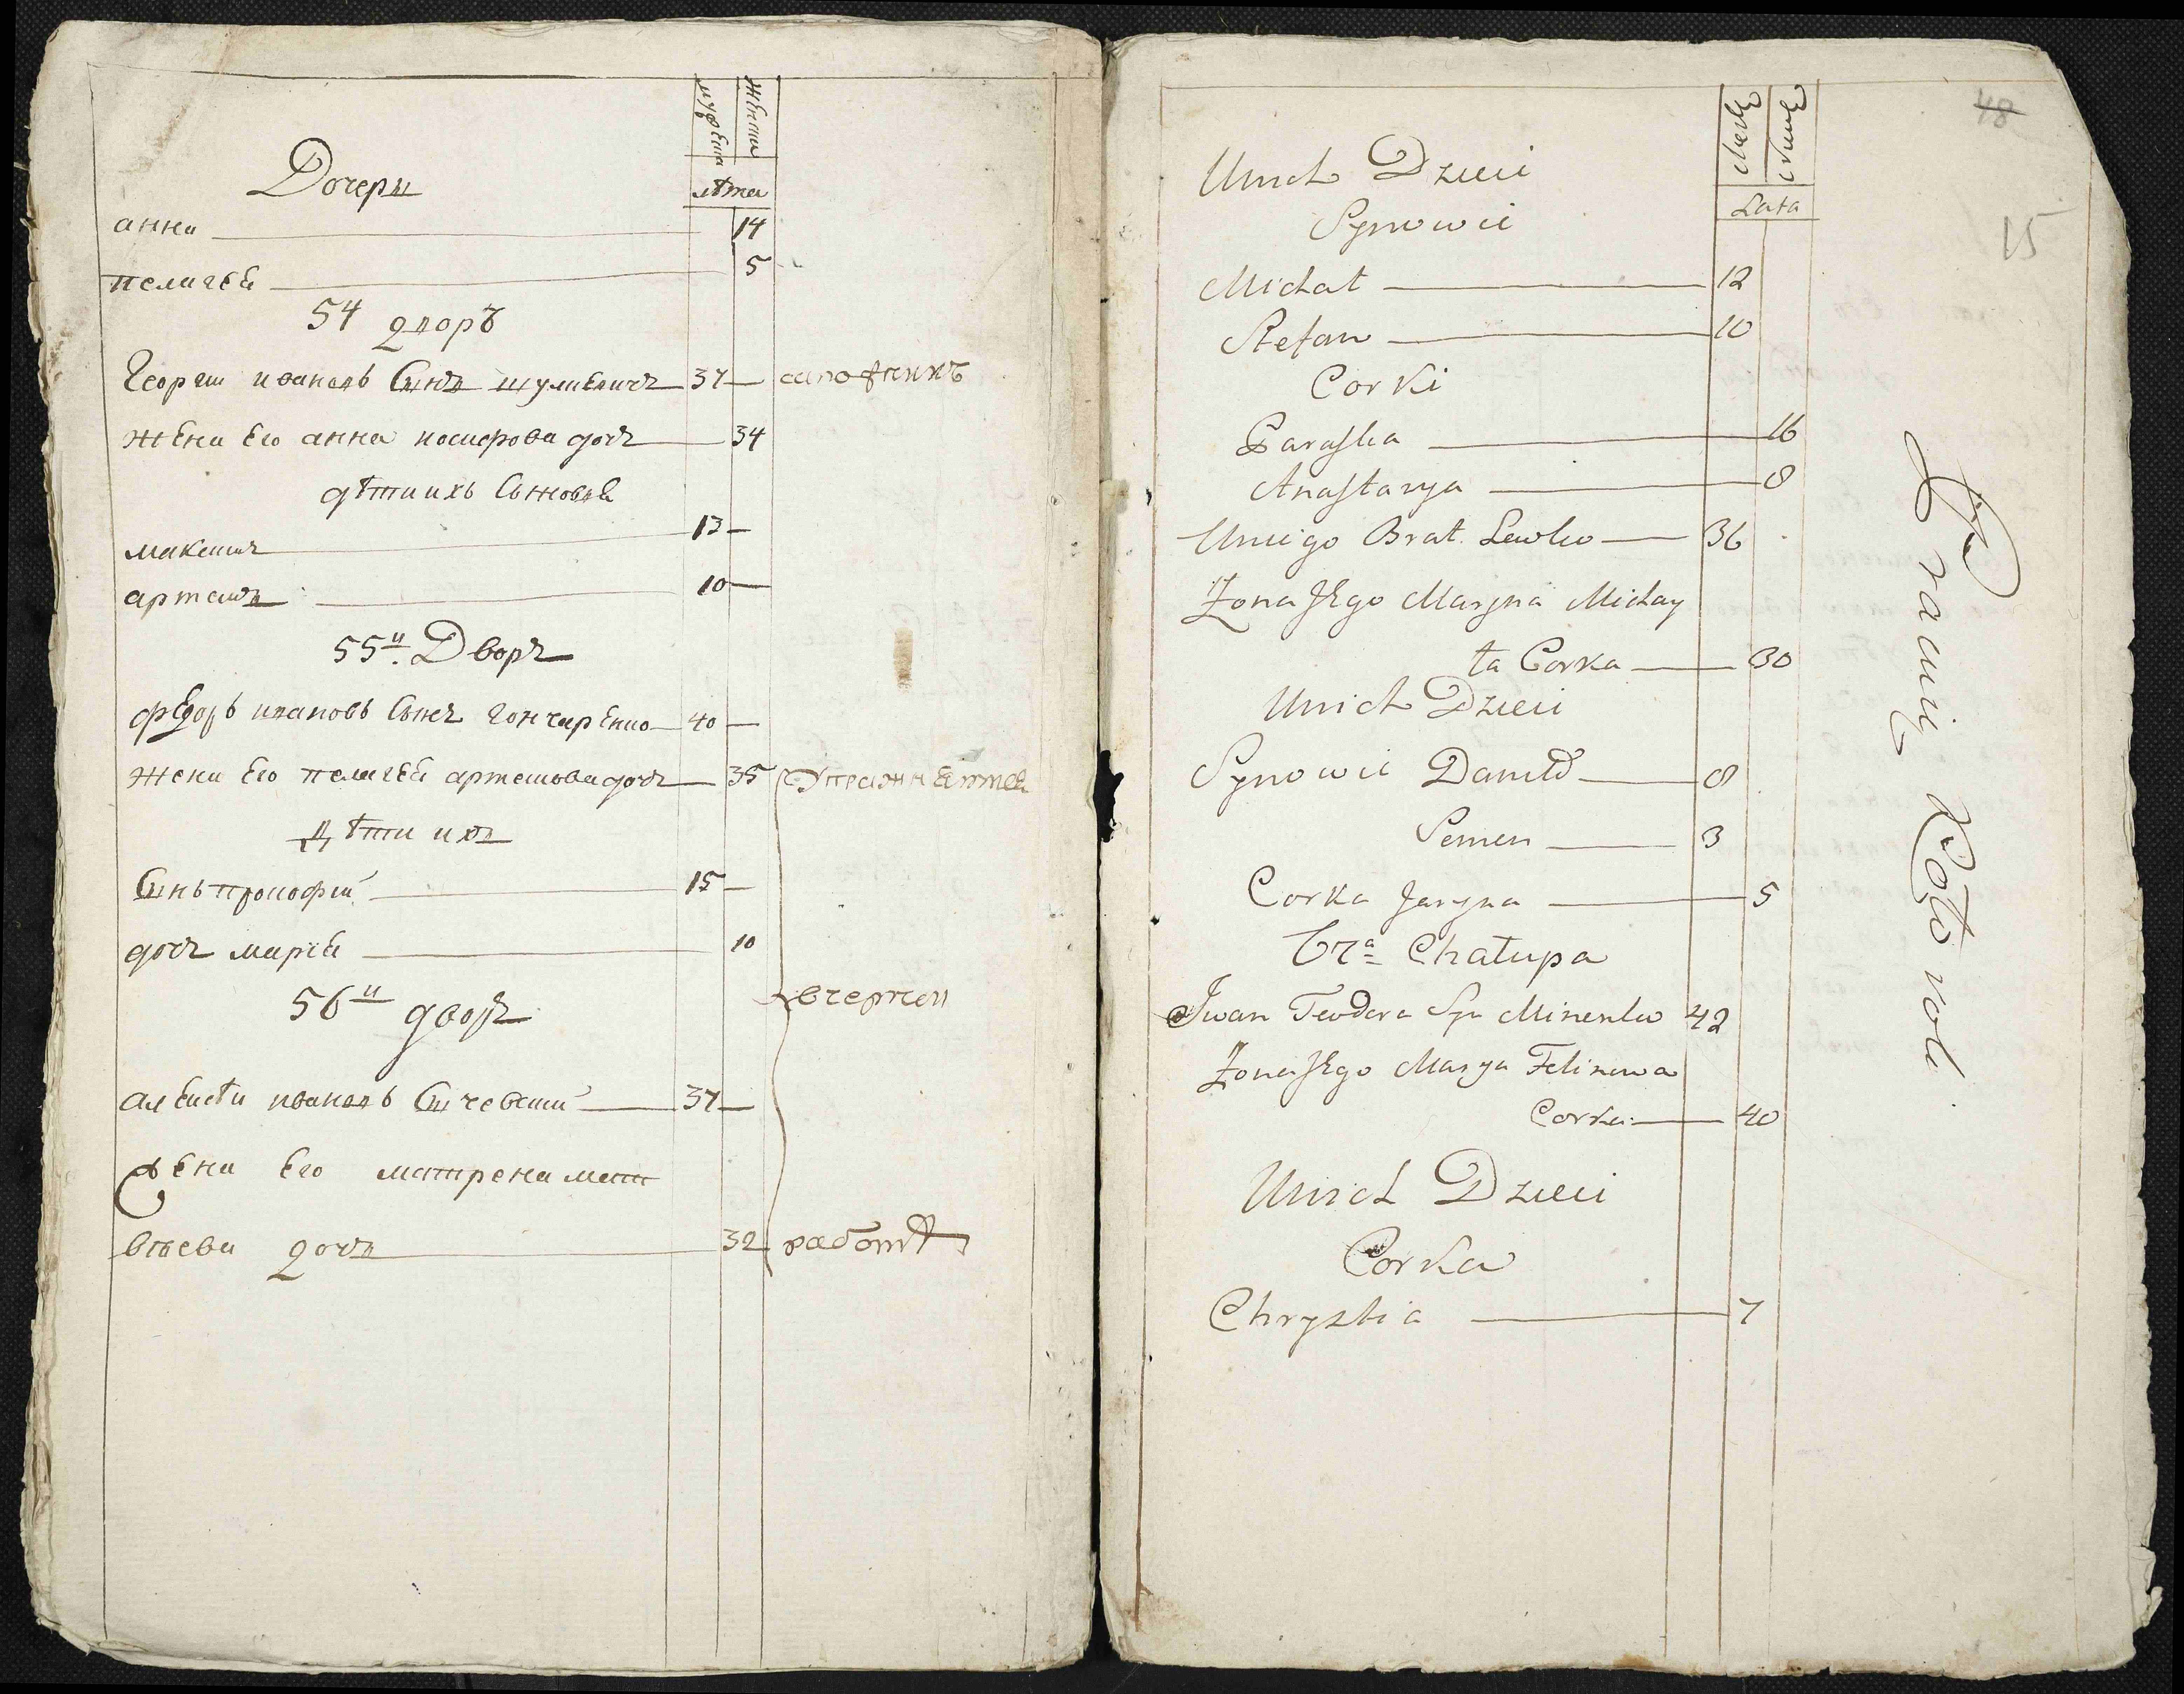 мужеска
женска
лѣта
Дочери
анна 14
пелагея 5
54 дворъ
Георгии ивановъ Сынъ шулкевичъ 37 сапожникъ
жена Его анна иосифова дочъ 34
дѣти ихъ Сыновья
максимъ 13
артемъ 10
55й Дворъ
фЕдоръ ивановъ Сынъ гончарЕнко 40
жена Его пелагея артемова дочъ 35 Упражняются
дѣти ихъ
Сынъ прокофий 15
дочъ марея 10
56й дворъ
вчерной
алексѣи ивановъ Сычевский 37
жена Его матрена мат
вѣева дочъ 32 работѣ
Męskie
Żenskie
Lata
48
15
Unich Dzieci
Synowie
Michał 12
Stefan 10
Corki
Paraska 16
Anastazya 8
Uniego Brat Lewko 36
Zona Jego Maryna Michay
ła Corka 30
Unich Dzieci
Synowie Daniło 8
Semen 3
Corka Jaryna 5
67a Chałupa
Iwan Teodora Syn Minenko 42
Zona Jego Marya Felinowa
Corka 40
Unich Dzieci
Corka
Chrystia 7
Pracuią Koło roli